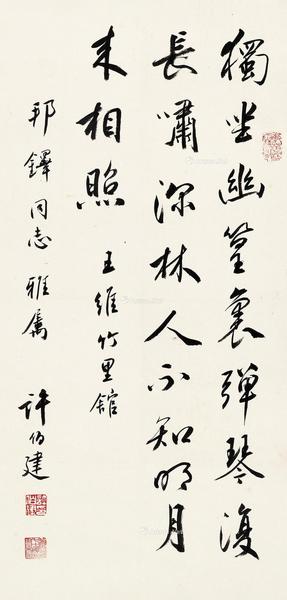 獨坐幽篁裏彈琴復
長嘯深林人不知明月
来相照 王維竹里館
邦鐸同志雅屬 許伯建